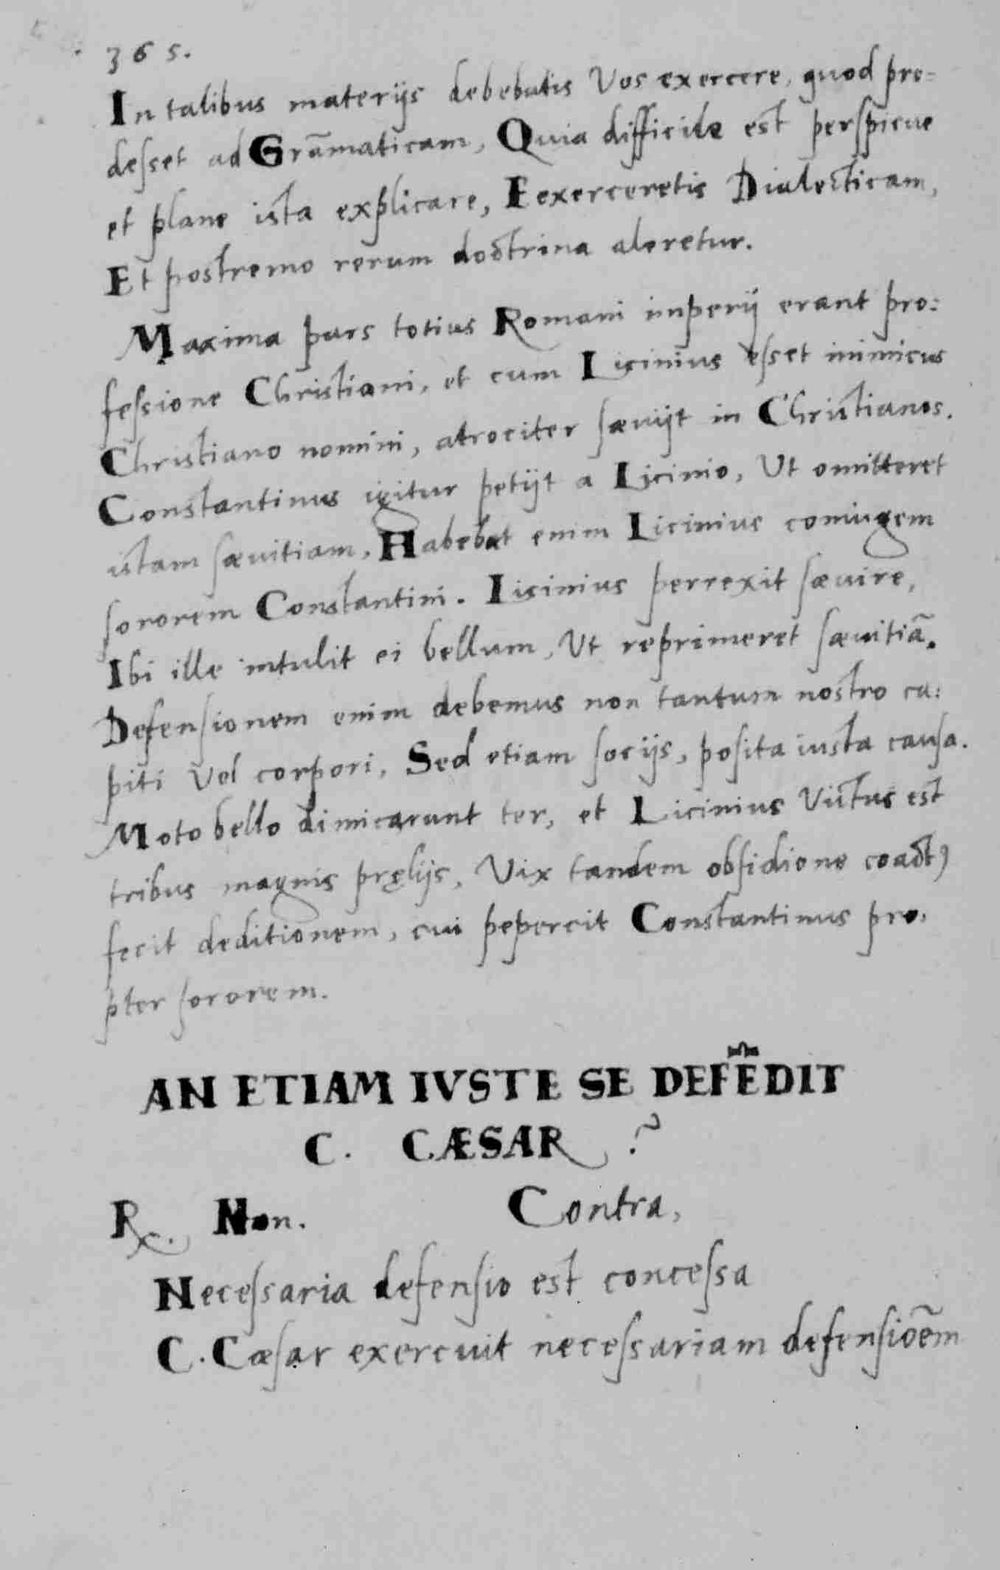 365.
In talibus materijs debebatis Vos exercere, quod pro=
desset ad Grāmaticam, Quia difficile est perspicue
et plane ista explicare, Eexerceretis Dialecticam,
Et postremo rerum doctrina aleretur.
Maxima pars totius Romani imperij erant pro:
fessione Christiani, et cum Licinius esset inimicus
Christiano nomini, atrociter sæuijt in Christianos.
Constantinus igitur petijt a Licinio, Ut omitteret
istam sæuitiam, Habebat enim Licinius coniugem
sororem Constantini. Licinius perrexit sæuire,
Ibi ille intulit ei bellum, Ut reprimeret sæuitiā.
Defensionem enim debemus non tantum nostro ca:
piti Vel corpori, Sed etiam socijs, posita iusta causa.
Moto bello dimicarunt ter, et Licinius Victus est
tribus magnis pręlijs, Vix tandem obsidione coact9
fecit deditionem, cui pepercit Constantinus pro:
pter sororem.
AN ETIAM IVSTE SE DEFĒDIT
C. CÆSAR?
R. Non. Contra,
Necessaria defensio est concessa
C. Cæsar exercuit necessariam defensiōem